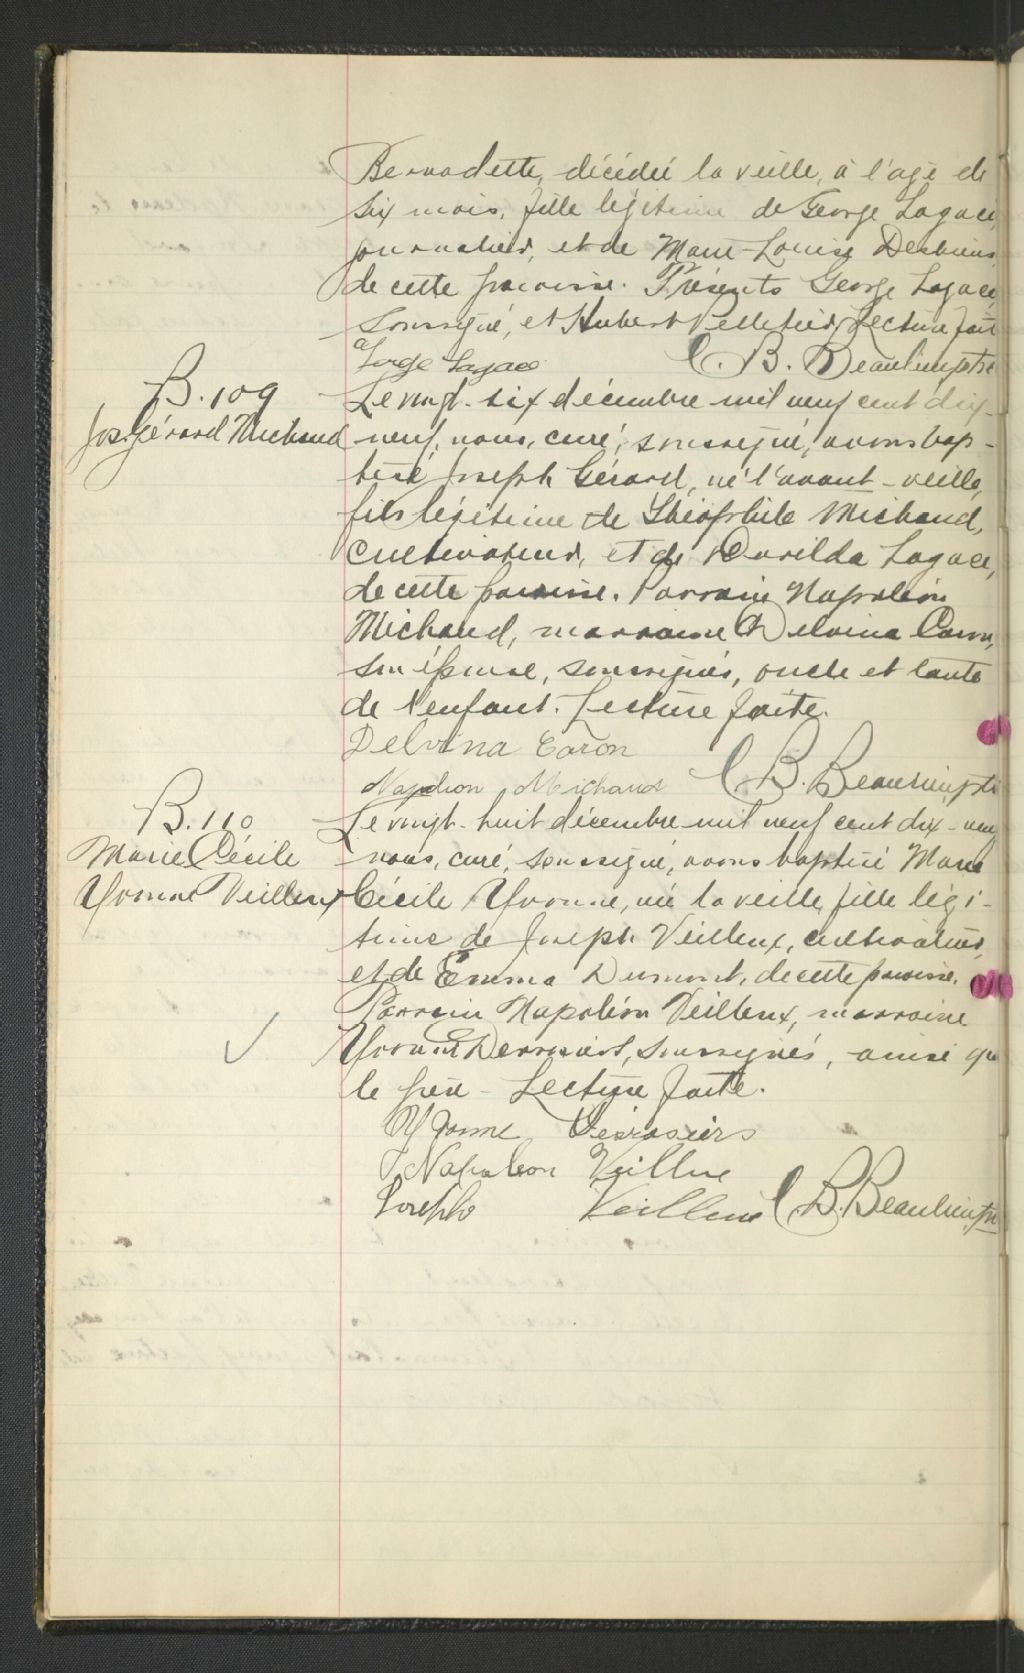 Bernadette, décédée la veille, à l'âge de
six mois, fille légitime de George Lagacé,
journalier, et de Marie-Louise Desbiens,
de cette paroisse. Présents George Lagacé,
soussigné, et Hubert Pelletier. Lecture faite
George Lagacé C. B. Beaulieu, ptre
B. 109
Jos. Gérard Michaud
Le vingt-six décembre mil neuf cent dix-
neuf, nous, curé, soussigné, avons bap-
tisé Joseph Gérard, né l'avant-veille,
fils légitime de Théophile Michaud,
cultivateur, et de Davilda Lagacé,
de cette paroisse. Parrain Napoléon
Michaud, marraine Delvina Caron,
son épouse, soussignés, oncle et tante
de l'enfant. Lecture faite.
Delvina Caron
Napoleon Michaud C B. Beaulieu, ptr
B. 110
Marie Cécile
Yvonne Veilleux
Le vingt-huit décembre mil neuf cent dix-neuf
nous, curé, soussigné, avons baptisé Marie
Cécile Yvonne, née la veille, fille légi-
time de Joseph Veilleux, cultivateur,
et de Emma Dumont, de cette paroisse.
Parrain Napoléon Veilleux, marraine
Yvonne Desrosiers, soussignés, ainsi que
le père - Lecture faite.
Yvonne Desrosiers
Napoleon Veilleux
Joseph Veilleux C B. Beaulieu, ptr